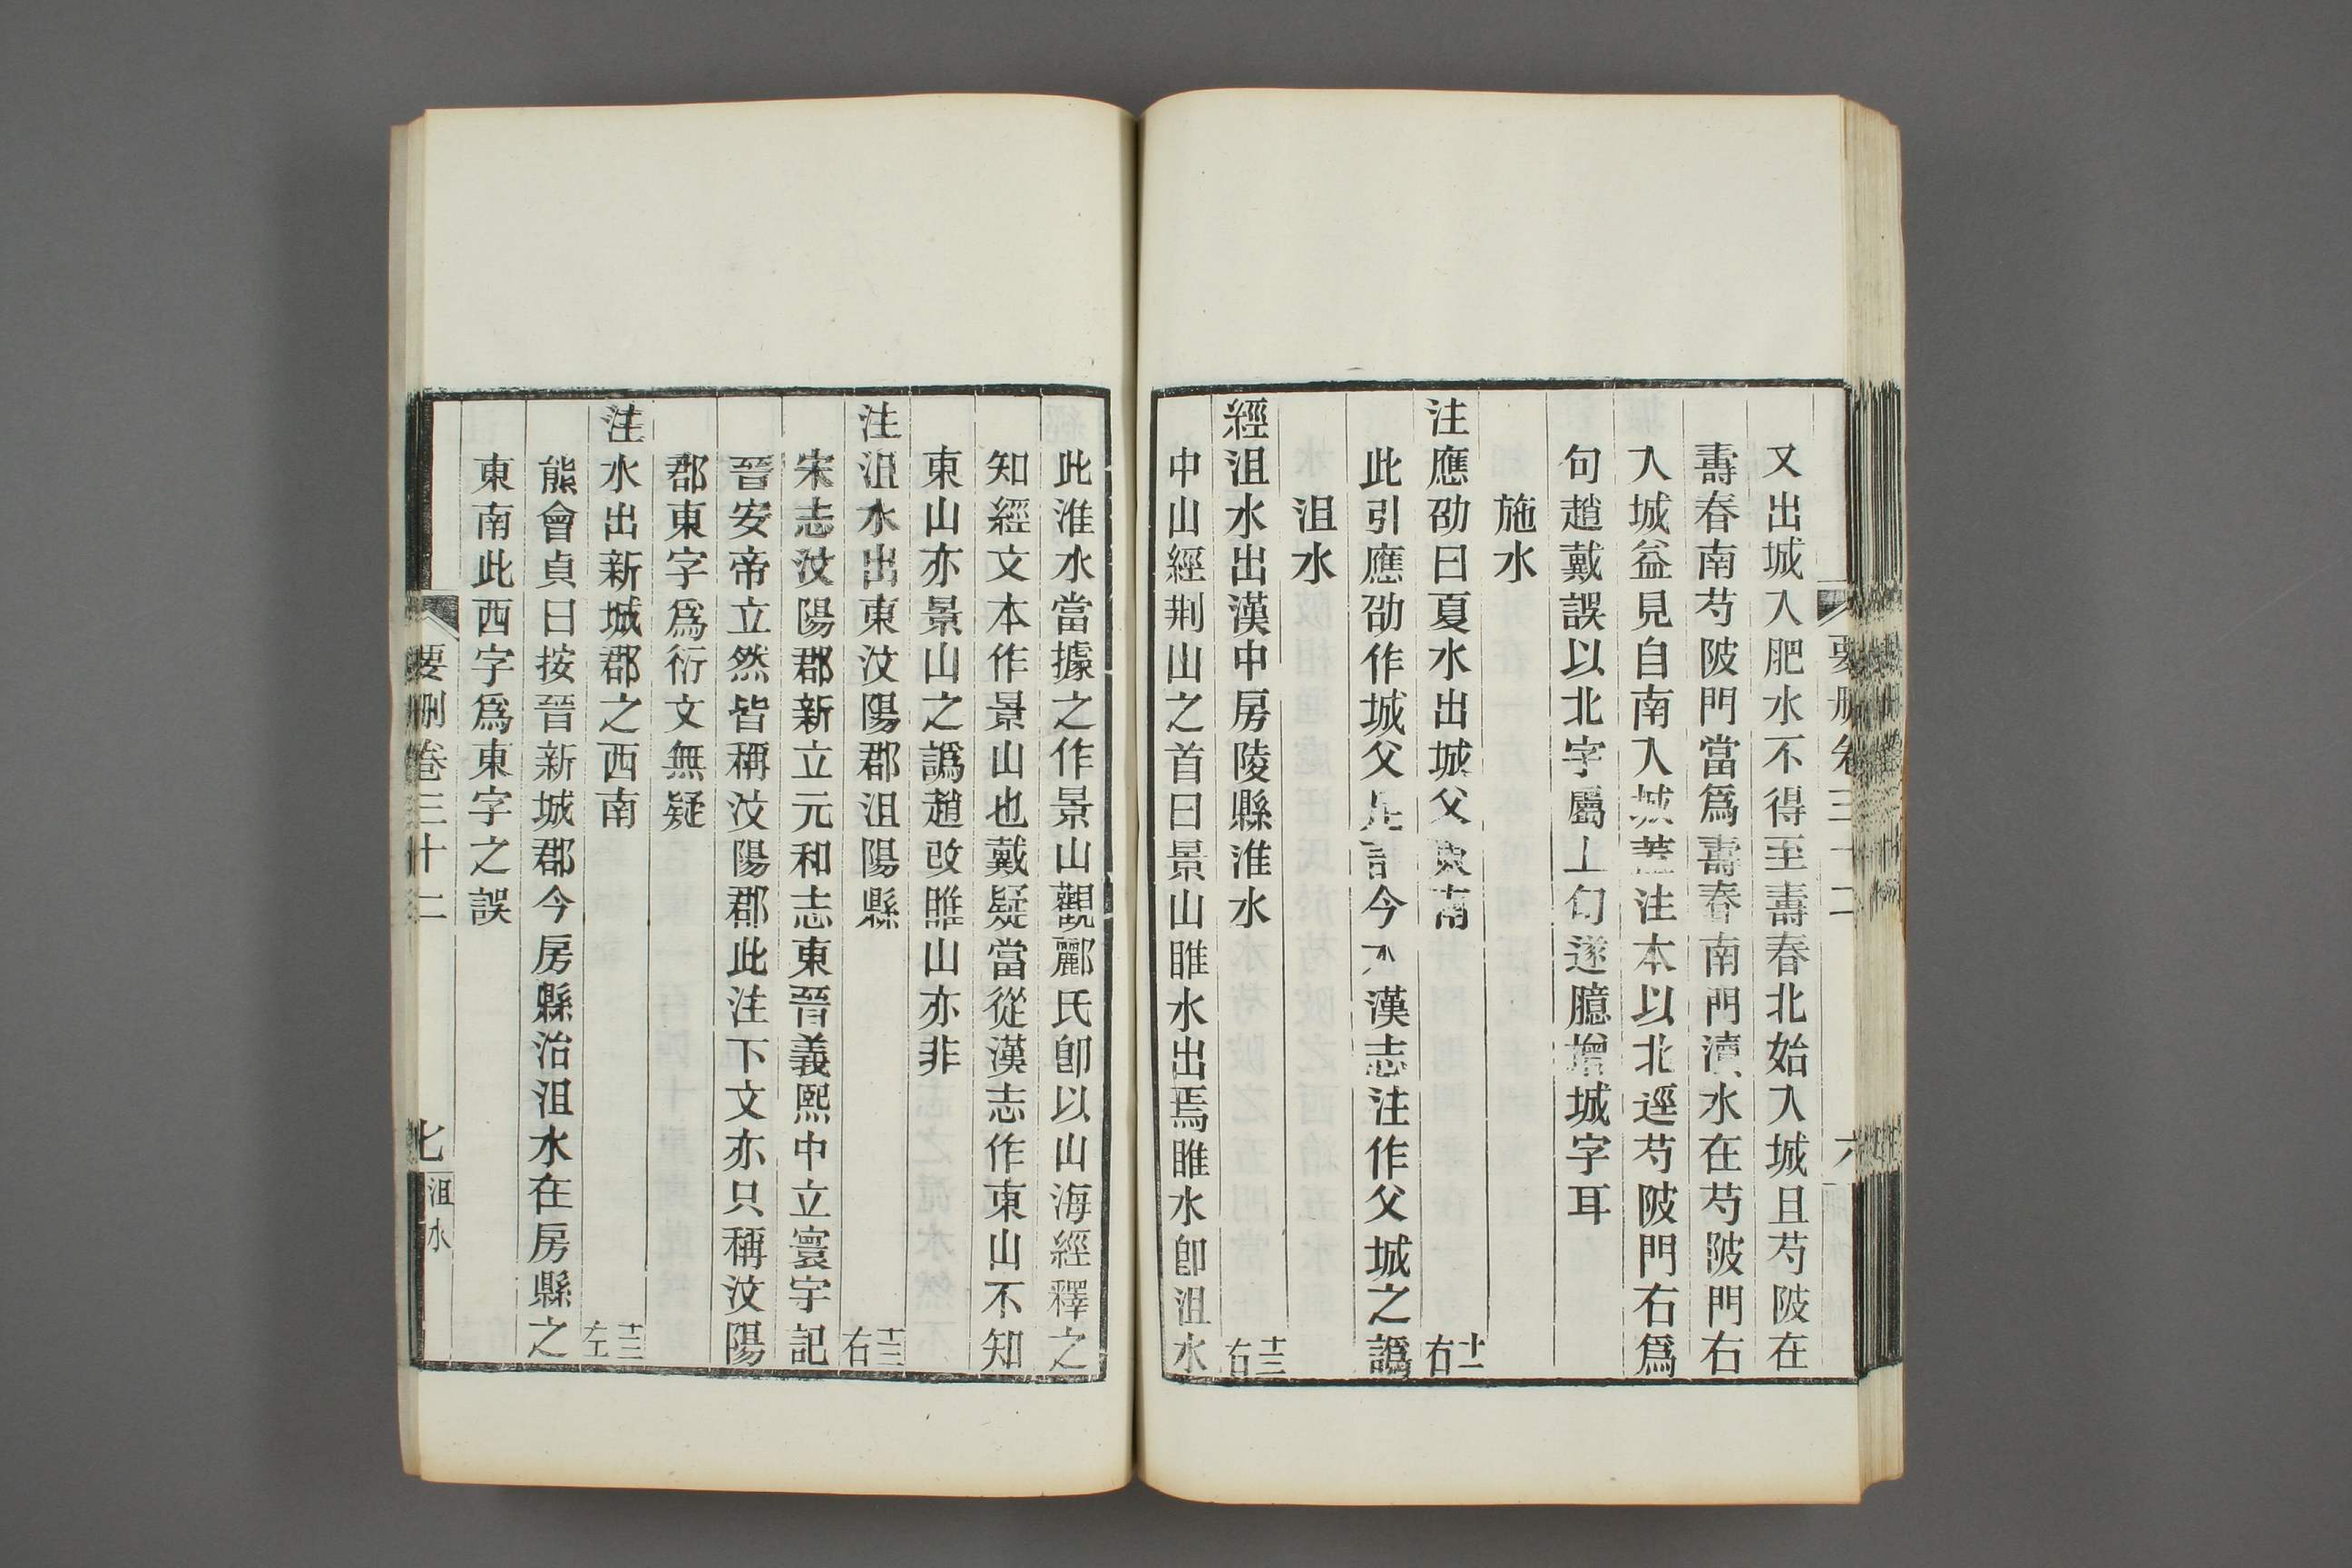 又出城入肥水不得至壽春北始入城且芍陂在
壽春南芍陂門當爲壽春南門瀆水在芍陂門右
入城益見自南入城蓋注本以北逕芍陂門右爲
句趙戴誤以北字屬上句遂臆增城字耳
施水
注應劭曰夏水出城父東南 十一右
此引應劭作城父是言今本漢志注作父城之譌
沮水
經沮水出漢中房陵縣淮水 十三右
中山經荆山之首曰景山雎水出焉雎水卽沮水
此淮水當據之作景山觀酈氏卽以山海經釋之
知經文本作景山也戴疑當從漢志作東山不知
東山亦景山之譌趙改雎山亦非
注沮水出東汶陽郡沮陽縣 十三右
宋志汶陽郡新立元和志東晉義熙中立寰宇記
晉安帝立然皆稱汶陽郡此注下文亦只稱汶陽
郡東字爲衍文無疑
注水出新城郡之西南 十三左
熊會貞曰按晉新城郡今房縣治沮水在房縣之
東南此西字爲東字之誤
要刪卷三十二
七
沮水